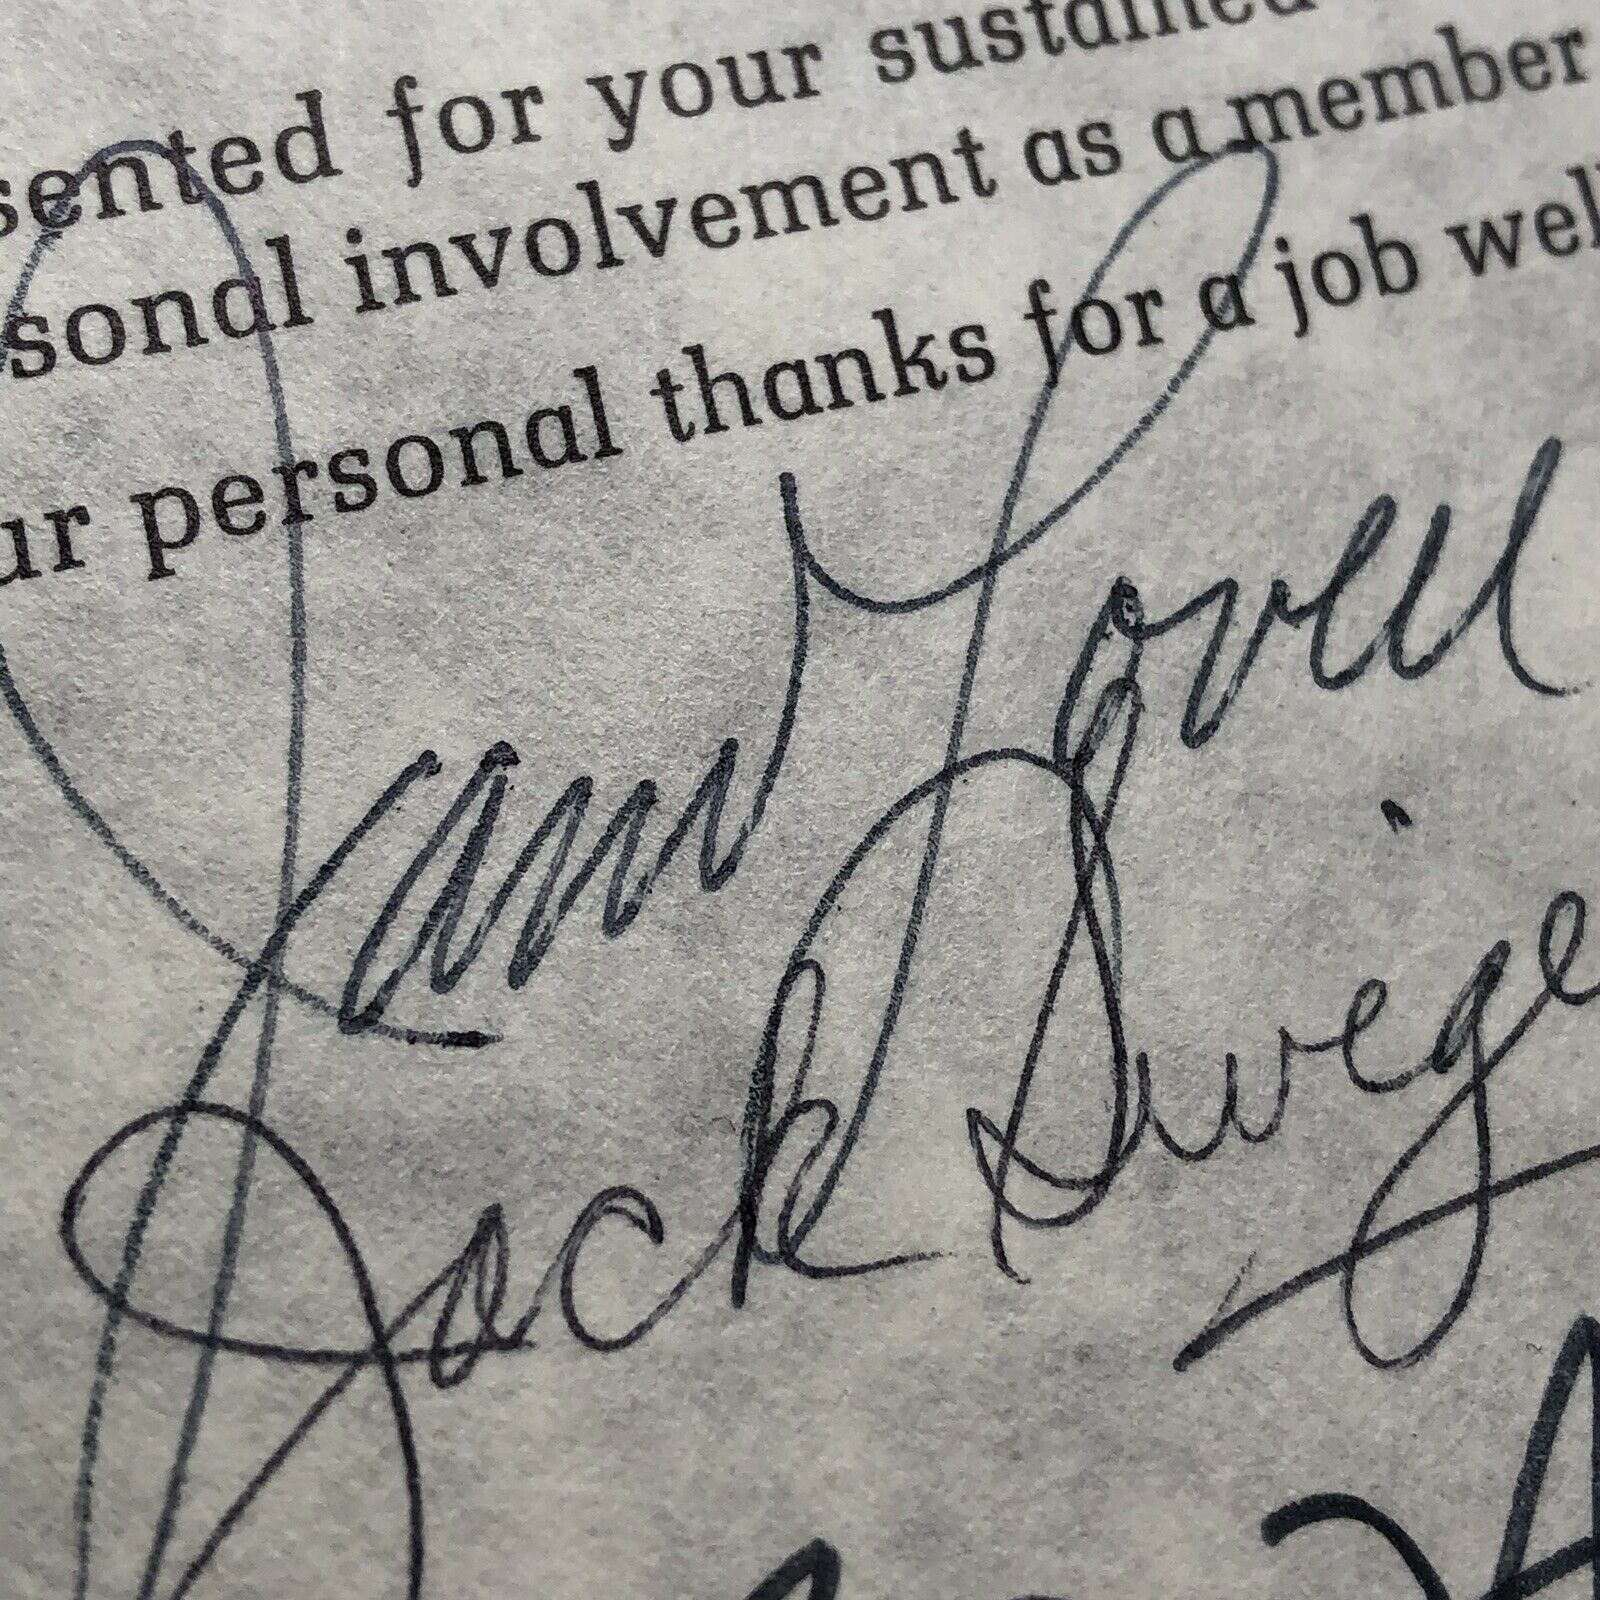 sented for your sustained
sonal involvement as a member
ur personal thanks for a job well
James Lovell
Jack Swige